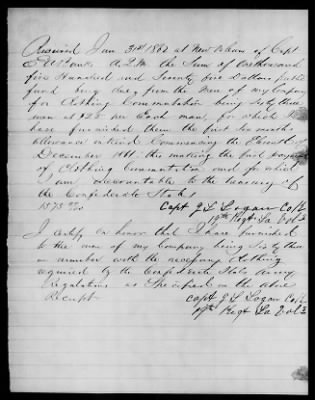 Received Jan. 31st 1862 at New Orleans of Capt
A.Q.M. the Sum of One thousand
five Hundred and Seventy five Dollars public
fund being due from the Men of my Company
for Clothing Commutation being Sixty three
men at $25 per Each man, for which I
have furnished them the first Six months
allowance in kind Commencing the
December 1861. this making the first payment
of Clothing Commutation and for which I
am accountable to the treasury of
the Confederate States
1575
Capt J L Logan Co
19th Regt La Vols
I certify on honor that I have furnished
to the men of my Company being Sixty three
in number with the necessary Clothing
required by the Confederate States Army
Regulations as Specified in the above
Receipt
Capt J L Logan Co
19th Regt La Vols